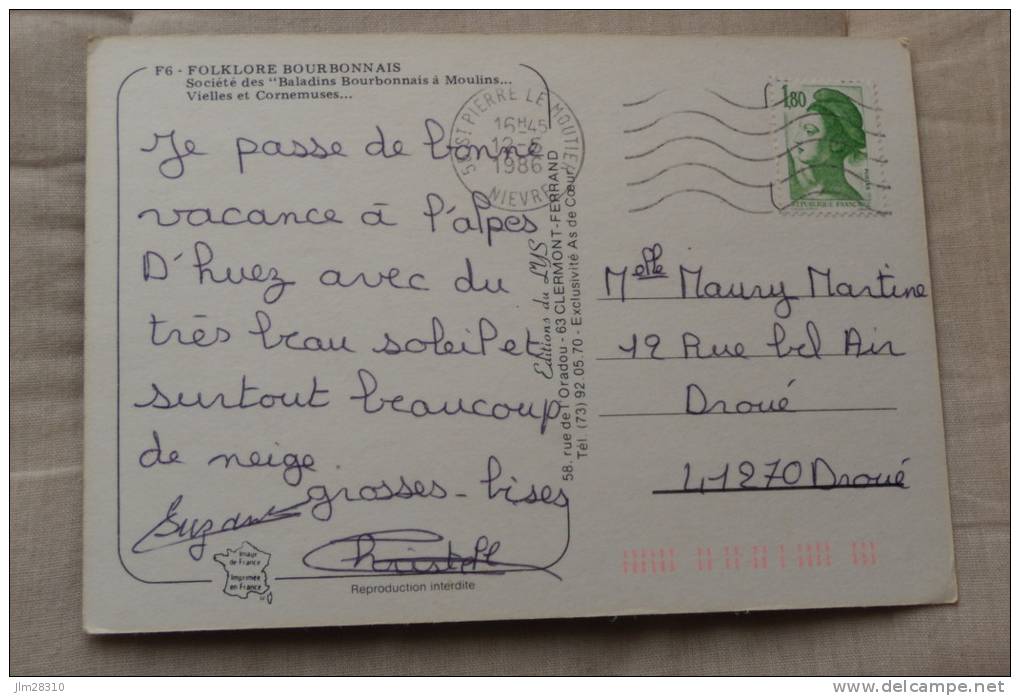 F6 - FOLKLORE BOURBONNAIS
Société des "Baladins Bourbonnais à Moulins...
Vielles et Cornemuses...
Je passe de bonne
vacance à l'alpes
D'huez avec du
très beau soleil et
surtout beaucoup
de neige.
grosses - bises
Suzanne
Christophe
Image
de France
Imprimée
en France
Reproduction interdite
58 ST PIERRE LE MOUTIER
16H45
1986
NIEVRE
Editions du LYS
58, rue de l'Oradou - 63 CLERMONT-FERRAND
Tél. (73) 92.05.70 - Exclusivité As de Cœur
1,80
REPUBLIQUE FRANÇAISE
Melle Maury Martine
12 Rue bel Air
Droué
41270 Droué
jlm28310
www.delcampe.net